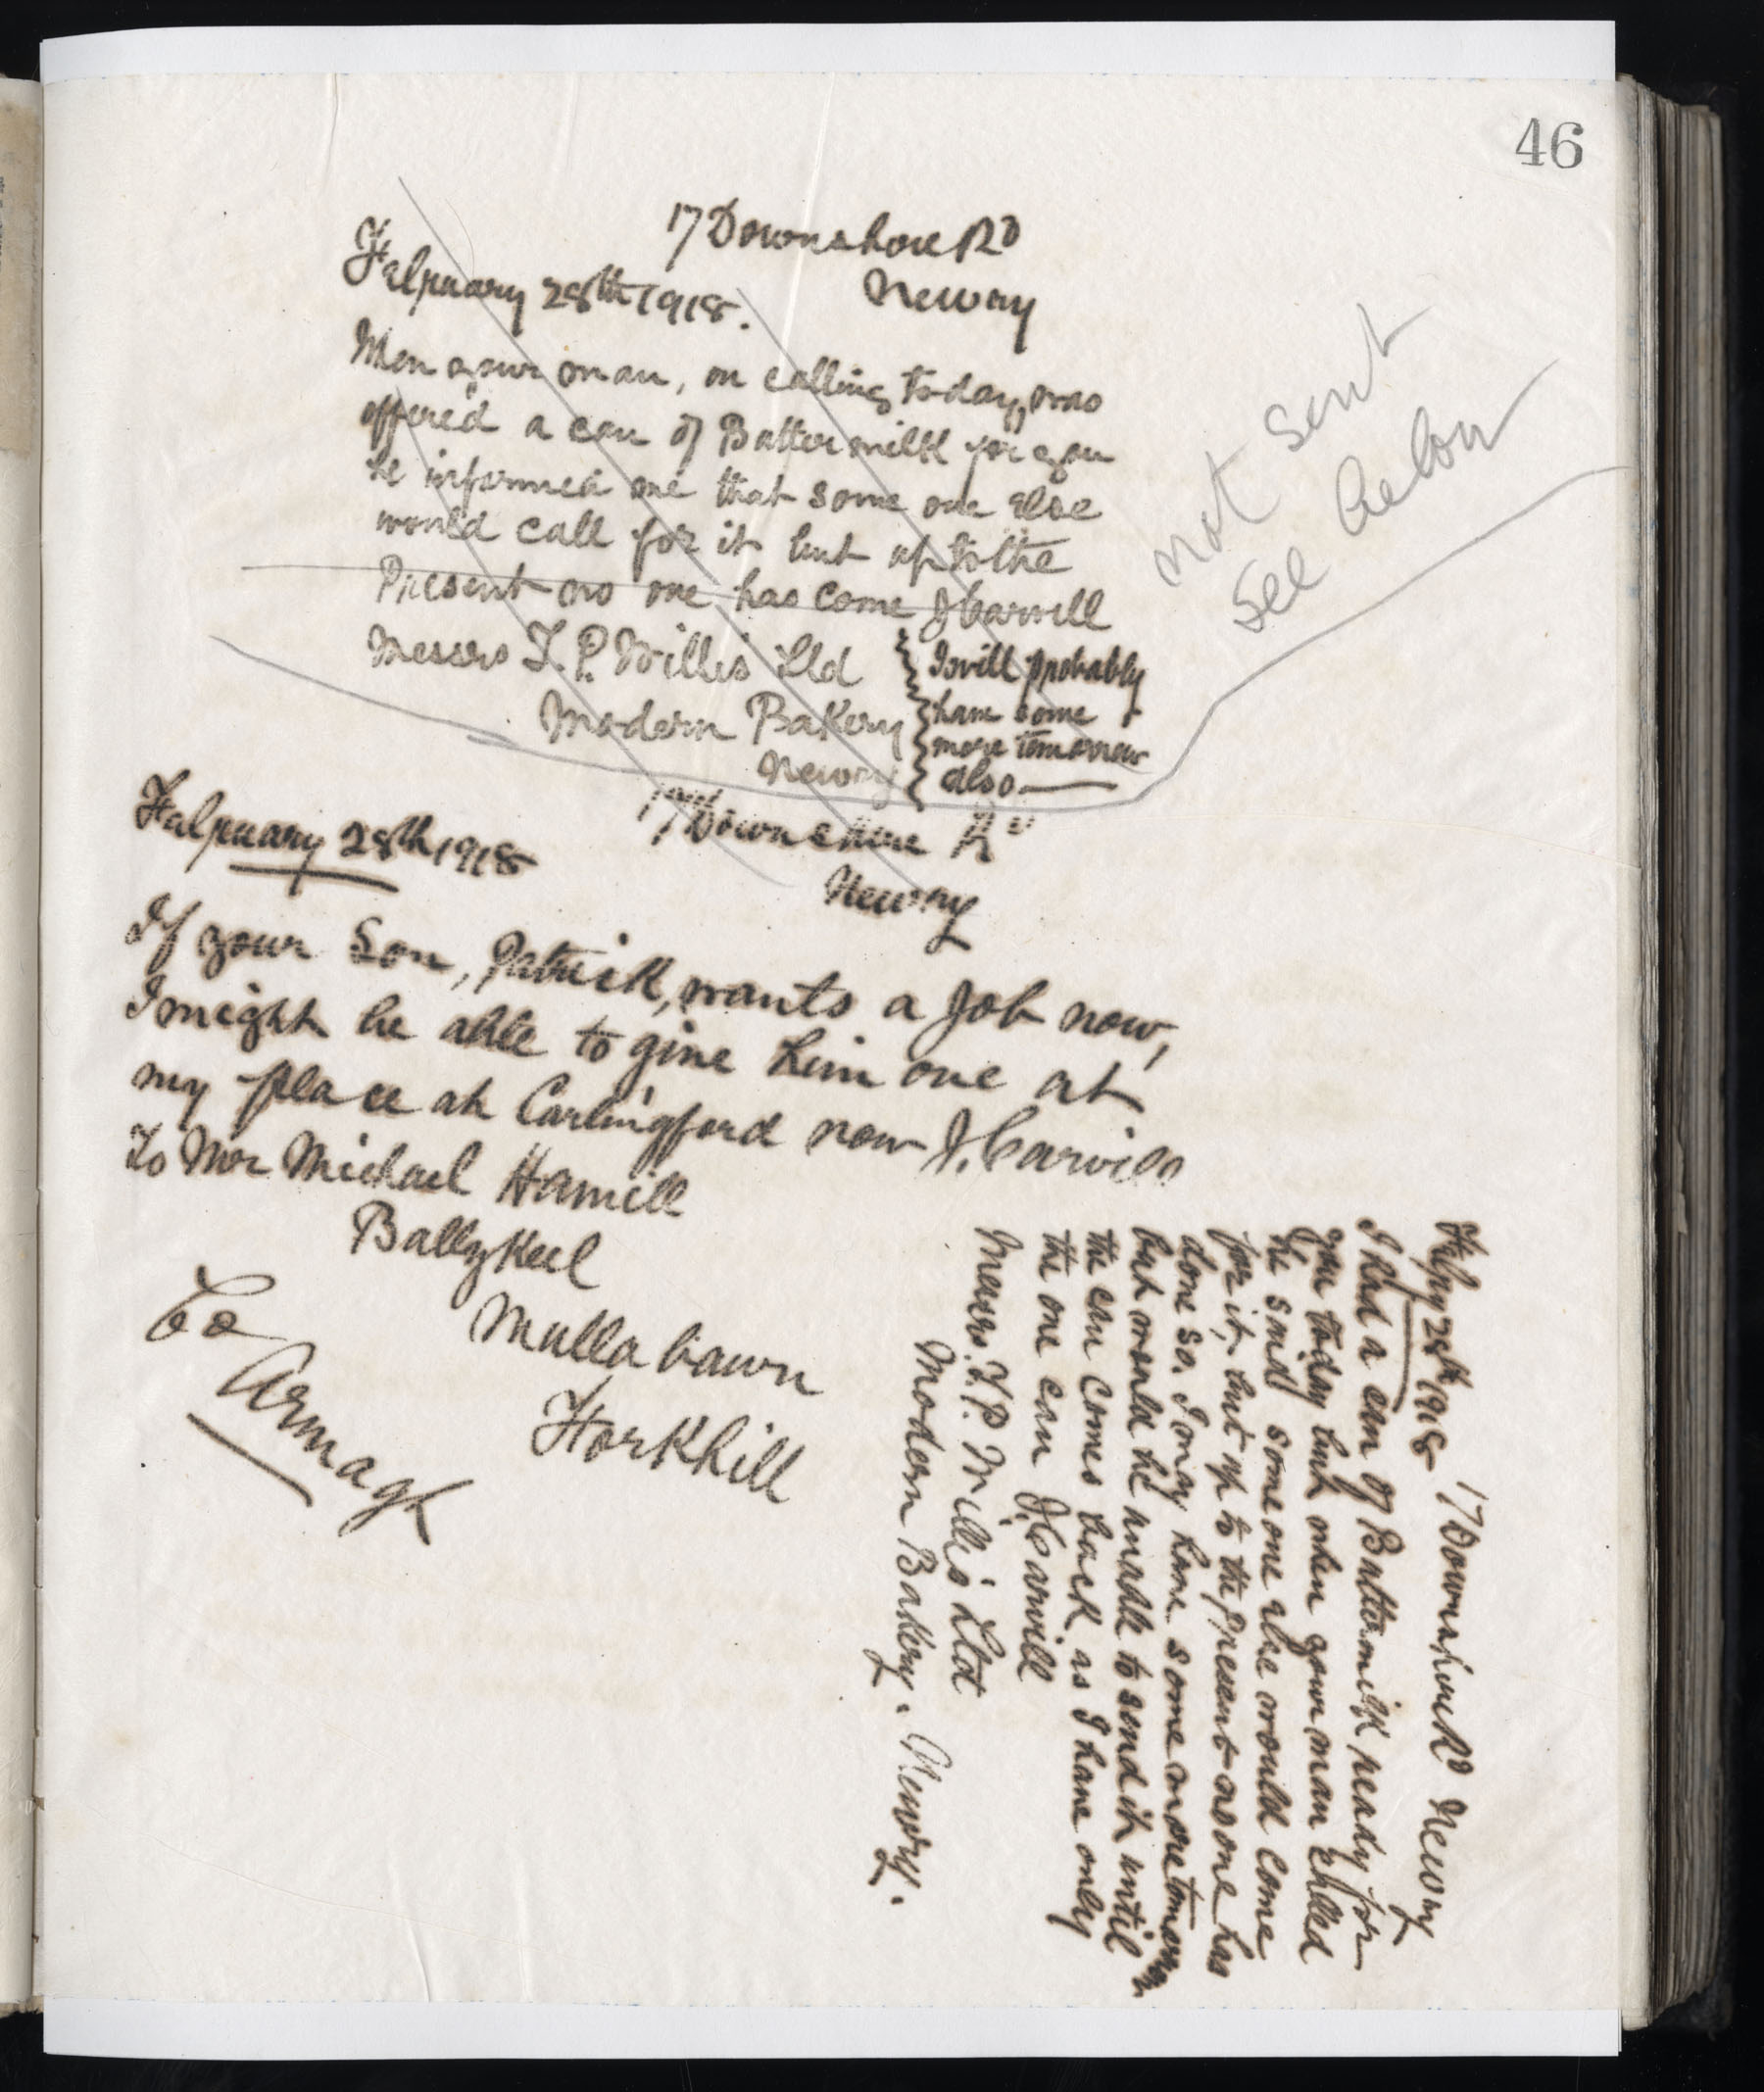 46
17 Downshire Rd
Newry
February 28th 1918.
When your man, on calling today, was
offered a can of Buttermilk for you
he informed me that some one else
would call for it but up to the
Present no one has come J Carvill
Messrs T. P. Willis Ltd
Modern Bakery
Newry
I will probably
have some
more tomorrow
also
not sent
see below
17 Downshire Rd
Newry
February 28th 1918
If your Son, Patrick, wants a Job now,
I might be able to give him one at
my place at Carlingford now J. Carvill
To Mr Michael Hamill
Ballykeel
Mullabawn
Forkhill
Co
Armagh
Feby 28th 1918 17 Downshire Rd Newry
I had a can of Buttermilk ready for
you today but when your man called
he said some one else would come
for it, but up to the present no one has
done so. I may have some more tomorrow
but would be unable to send it until
the can comes back as I have only
the one can J. Carvill
Messrs. T. P. Willis Ltd
Modern Bakery. Newry.